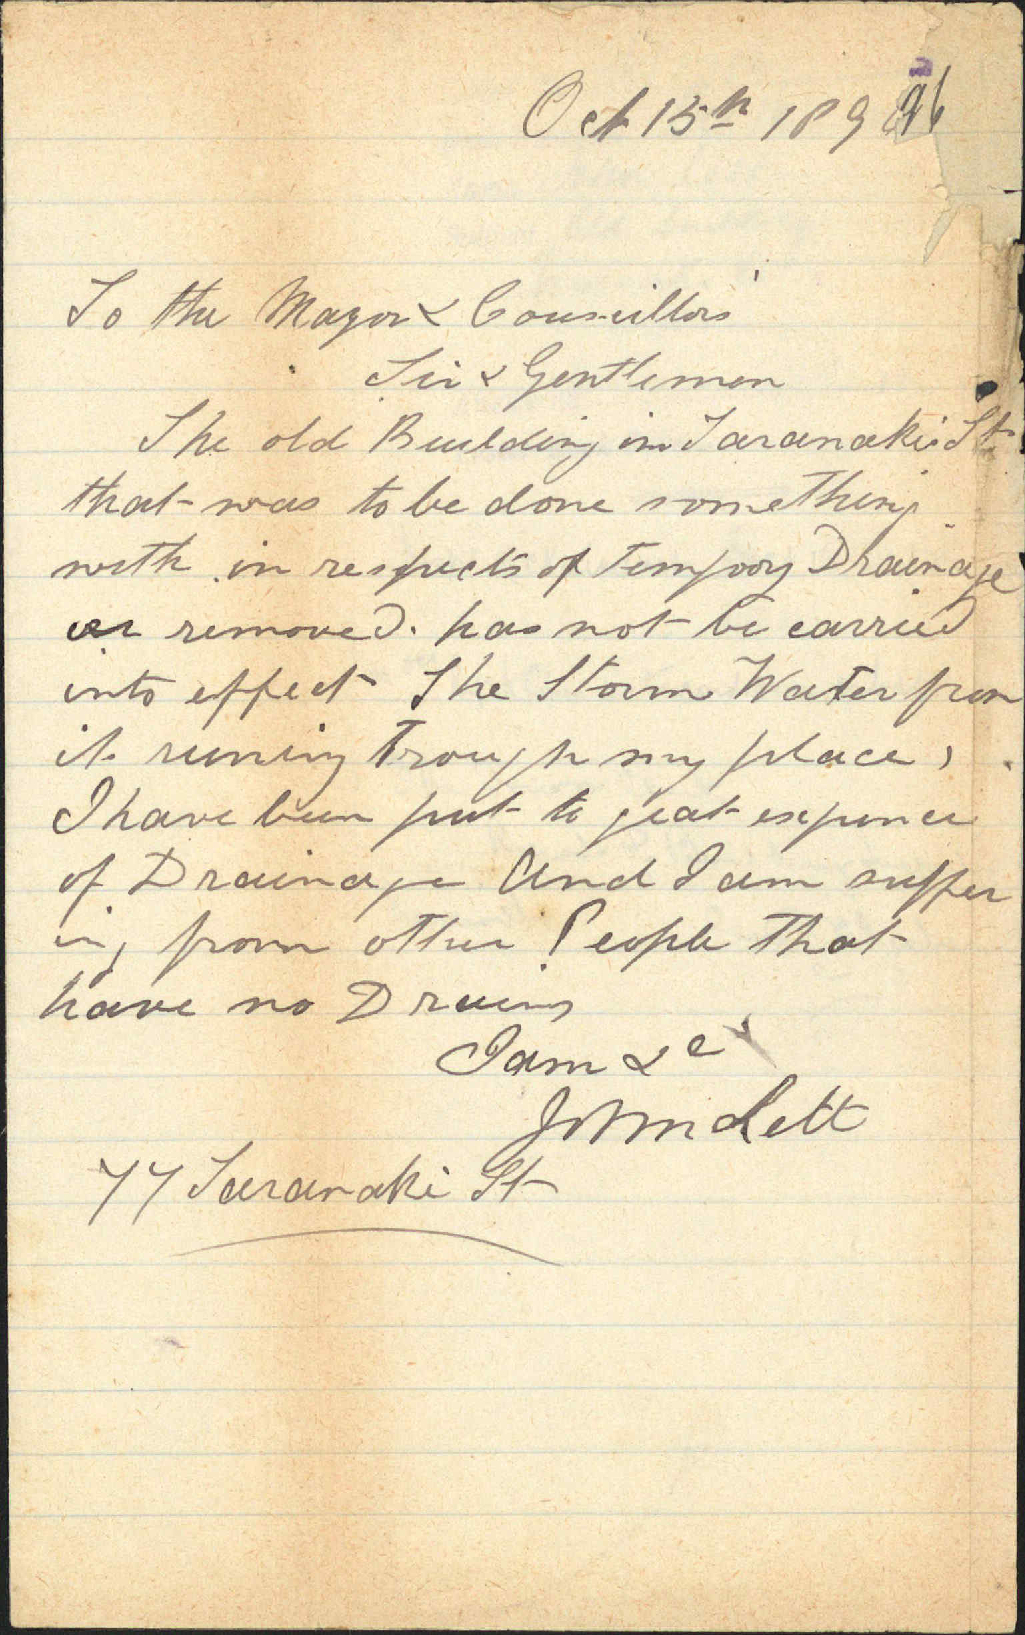 Oct 15th 1896
To the Mayor & Councillors
Sir & Gentlemen
The old Building in Taranaki St
that was to be done something
with in respects of tempory Drainage
or removed. has not be carried
into effect The Storm Water from
it runing trough my place,
I have been put to geat expence
of Drainage And I am suffer
ing from other People that
have no Drains
I am &c
John Lett
77 Taranaki St